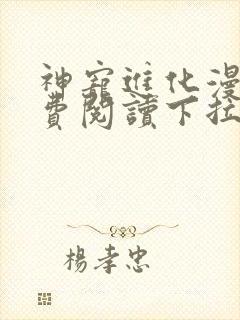 神寵進化漫
費閱讀下拉
楊孝忠